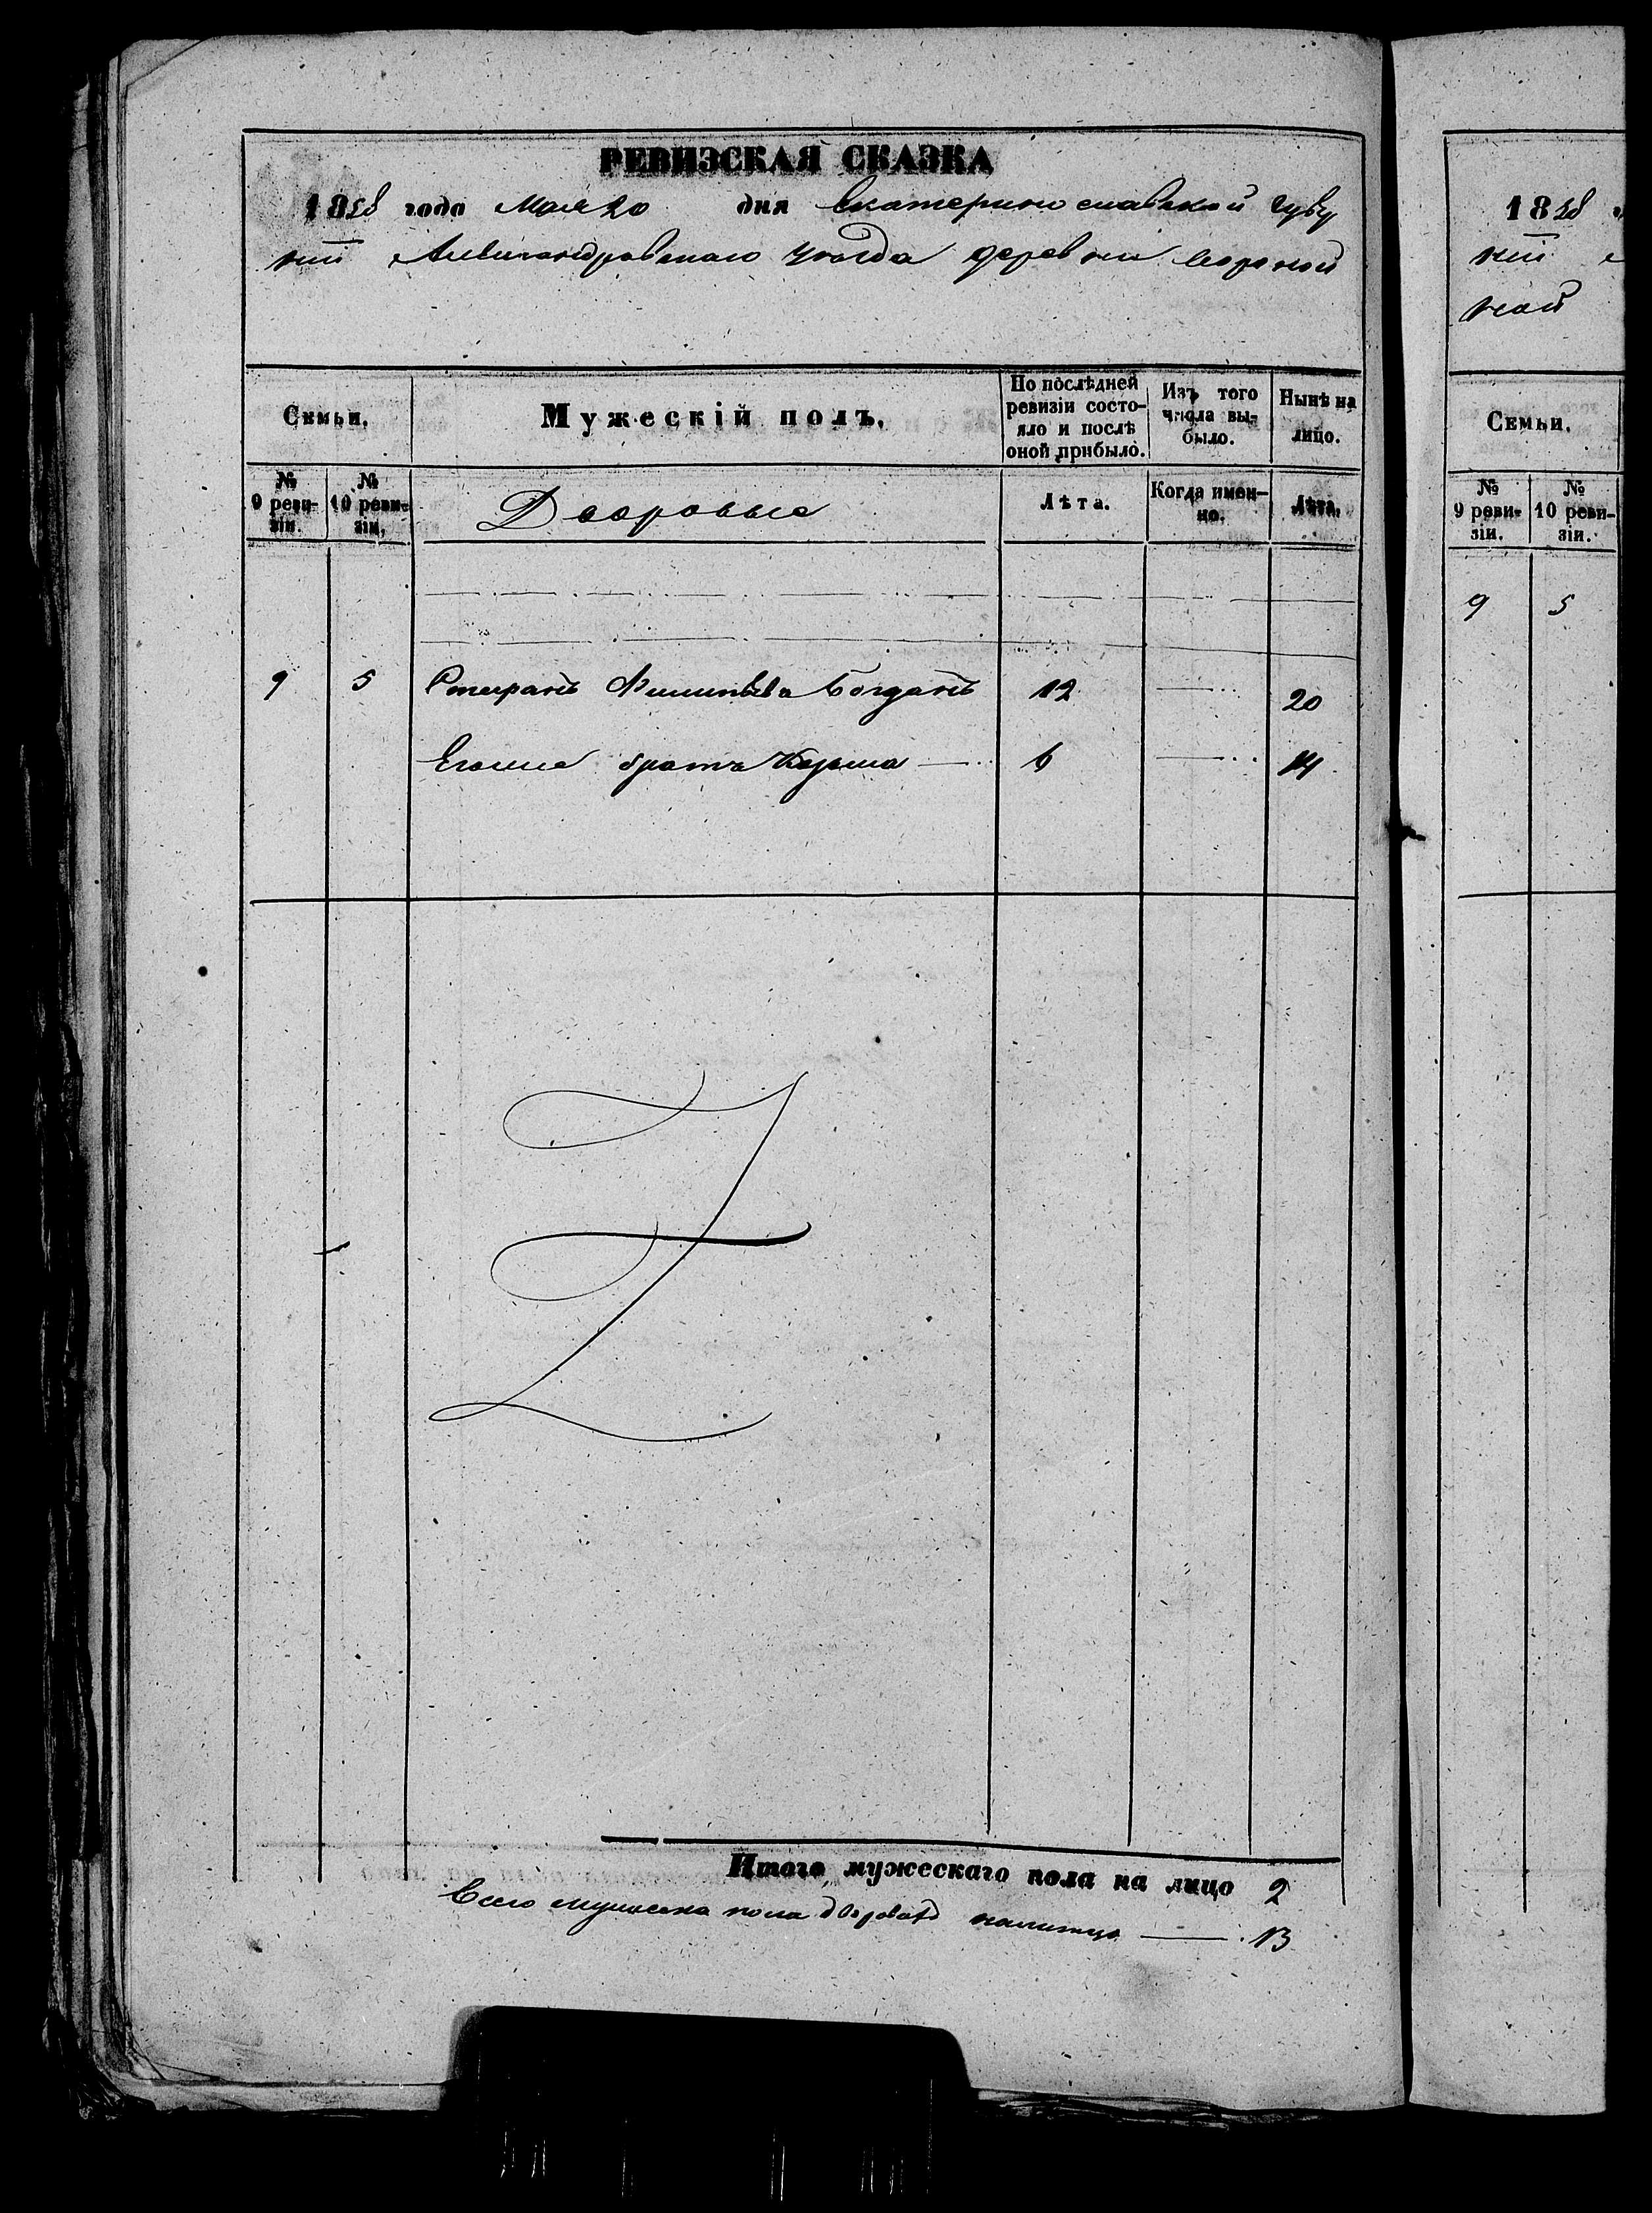 РЕВИЗСКАЯ СКАЗКА
1858 года Мая 20 дня Екатеринославской Губер
ніи Александровскаго уезда деревни
Семьи.
Мужескій полъ.
По послѣдней ревизіи состо-
яло и послѣ
оной прибыло.
Изъ того
числа вы-
было.
Нынѣ на
лицо.
№
9 реви-
зіи.
№
10 реви-
зіи.
Дворовые
Лѣта.
Когда имен-
но.
Лѣта.
9 5 Стефанъ Филиповъ Богданъ 12 20
Егоже братъ Козьма 6 14
Итого мужескаго пола на лицо 2
Всего мужеска пола дворовыхъ налицо 13
1858
ніи
ной
Семьи.
№
9 реви-
зіи.
№
10 реви-
зіи.
9 5